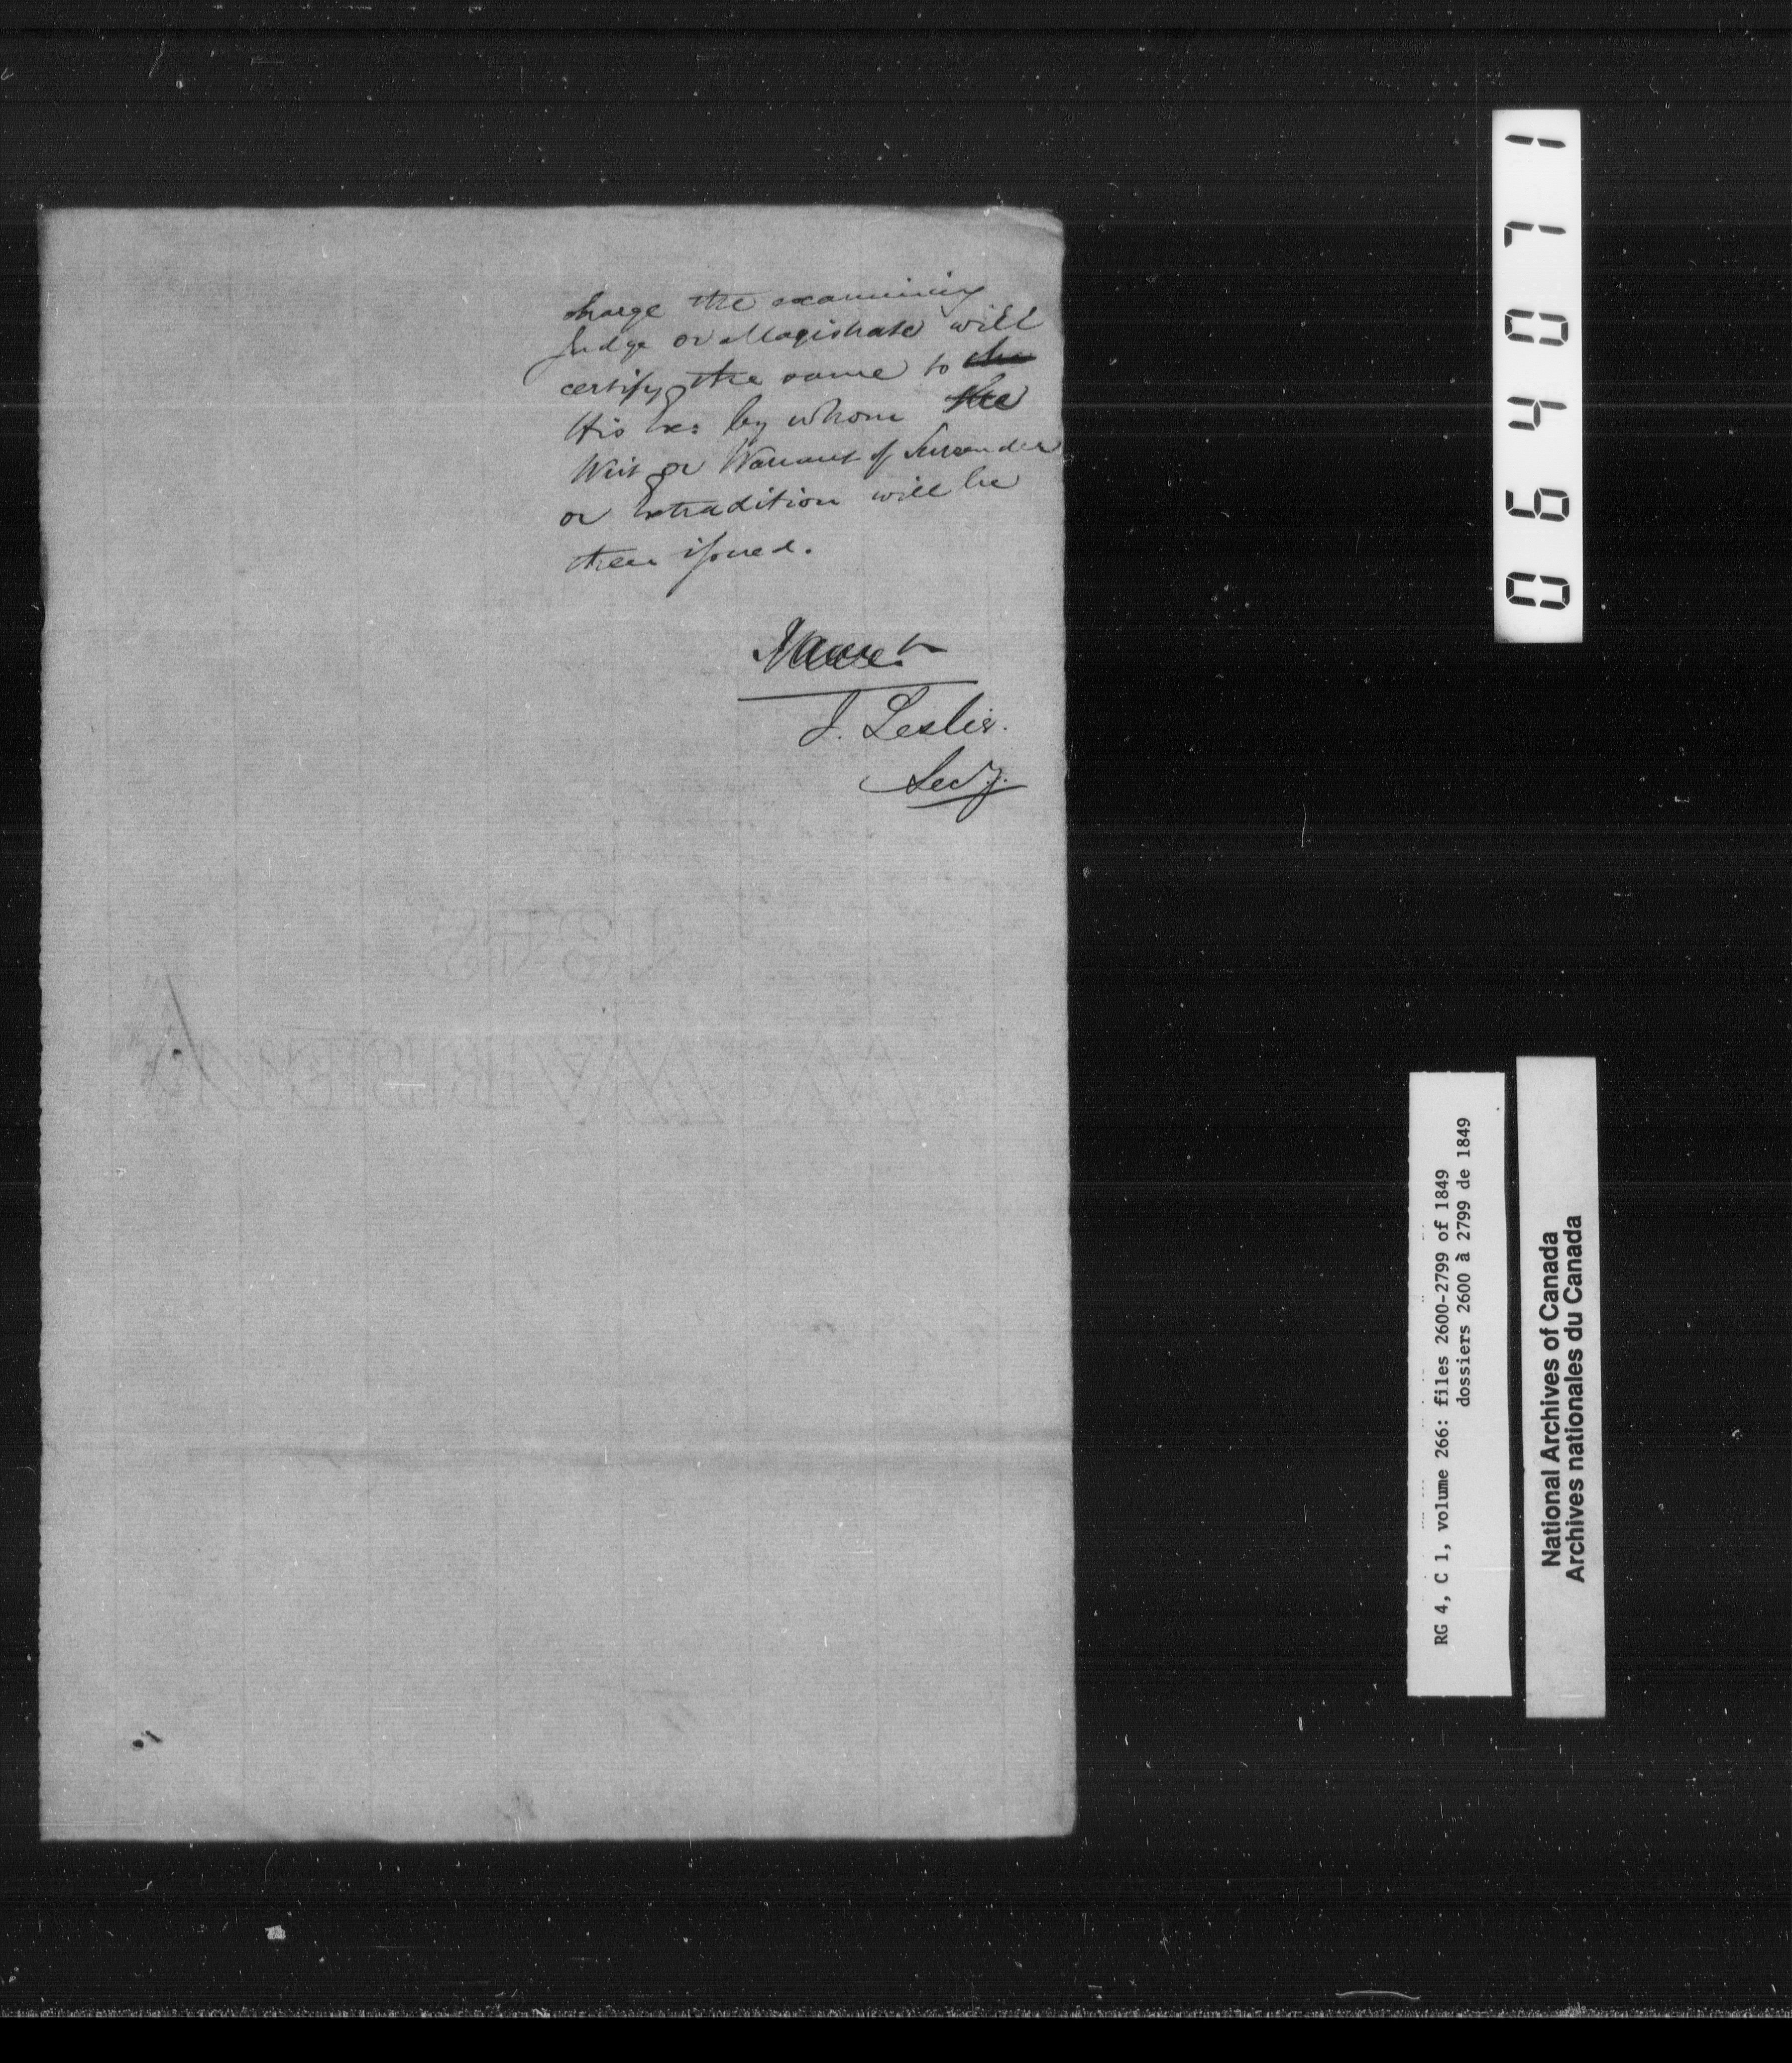 charge the examining
Judge or Magistrate will
certify the same to the
His Ex: by whom the
Writ or Warrant of Surrender
or Extradition will be
then issued.
J. Leslie.
Secy.
064071
RG 4, C 1, volume 266: files 2600-2799 of 1849
dossiers 2600 à 2799 de 1849
National Archives of Canada
Archives nationales du Canada